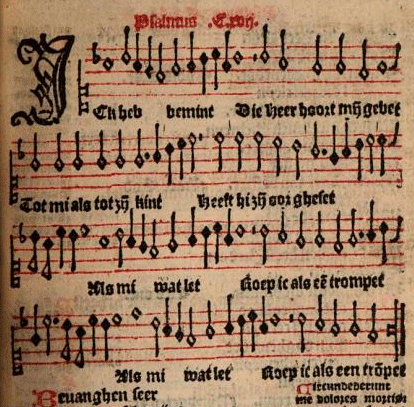 Psalmus .Cxvij.
ICk heb bemint Die Heer hoort mӱ gebet
Tot mi als tot zӱ kint Heeft hi zӱ oor gheset
Als mi wat let Roep ic als eē trompet
Als mi wat let Roep ic als een trōpet
Beuanghen seer
Circundederunt
me dolores mortis